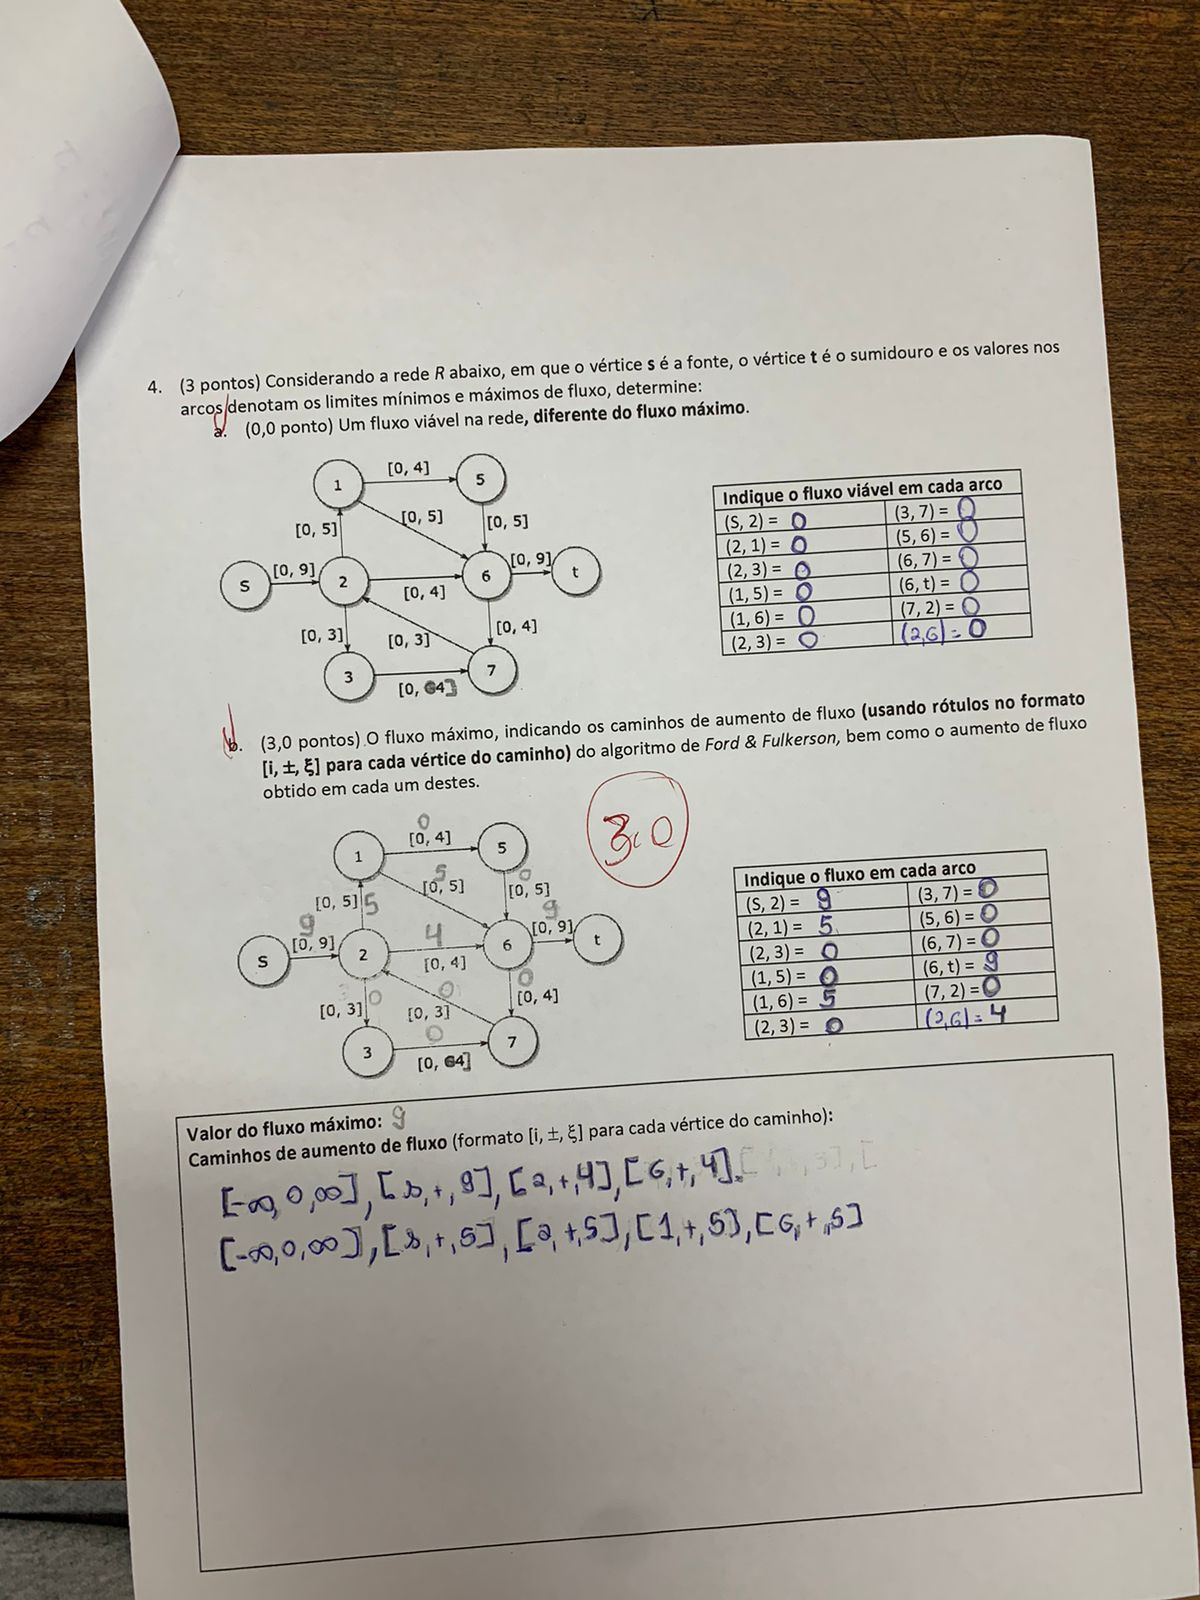 4. (3 pontos) Considerando a rede R abaixo, em que o vértice s é a fonte, o vértice t é o sumidouro e os valores nos
arcos denotam os limites mínimos e máximos de fluxo, determine:
a. (0,0 ponto) Um fluxo viável na rede, diferente do fluxo máximo.
1 [0, 4] 5
[0, 5] [0, 5] [0, 5]
S [0, 9] 2 [0, 4] 6 [0, 9] t
[0, 3] [0, 3] [0, 4]
3 [0, 64] 7
Indique o fluxo viável em cada arco
(S, 2) = 0 (3, 7) = 0
(2, 1) = 0 (5, 6) = 0
(2, 3) = 0 (6, 7) = 0
(1, 5) = 0 (6, t) = 0
(1, 6) = 0 (7, 2) = 0
(2, 3) = 0 (2,6) = 0
b. (3,0 pontos) O fluxo máximo, indicando os caminhos de aumento de fluxo (usando rótulos no formato
[i, ±, ξ] para cada vértice do caminho) do algoritmo de Ford & Fulkerson, bem como o aumento de fluxo
obtido em cada um destes.
3.0
0
1 [0, 4] 5
5 0
[0, 5] 5 [0, 5] [0, 5]
9 4 9
S [0, 9] 2 [0, 4] 6 [0, 9] t
0 0 0
[0, 3] [0, 3] [0, 4]
0
3 [0, 64] 7
Indique o fluxo em cada arco
(S, 2) = 9 (3, 7) = 0
(2, 1) = 5 (5, 6) = 0
(2, 3) = 0 (6, 7) = 0
(1, 5) = 0 (6, t) = 9
(1, 6) = 5 (7, 2) = 0
(2, 3) = 0 (2,6) = 4
Valor do fluxo máximo: 9
Caminhos de aumento de fluxo (formato [i, ±, ξ] para cada vértice do caminho):
[-∞, 0, ∞], [s, +, 9], [2, +, 4], [6, +, 4].
[-∞, 0, ∞], [s, +, 5], [2, +, 5], [1, +, 5], [6, +, 5]